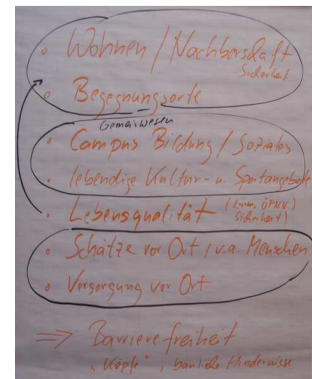 • Wohnen / Nachbarschaft
Sicherheit
• Begegnungsorte
Gemeinwesen
• Campus Bildung / Soziales
• lebendige Kultur- u. Sportangebote
• Lebensqualität (ÖPNV,
Sicherheit)
• Schätze vor Ort / v.a. Menschen
• Versorgung vor Ort
=> Barrierefreiheit
"Köpfe", bauliche Hindernisse